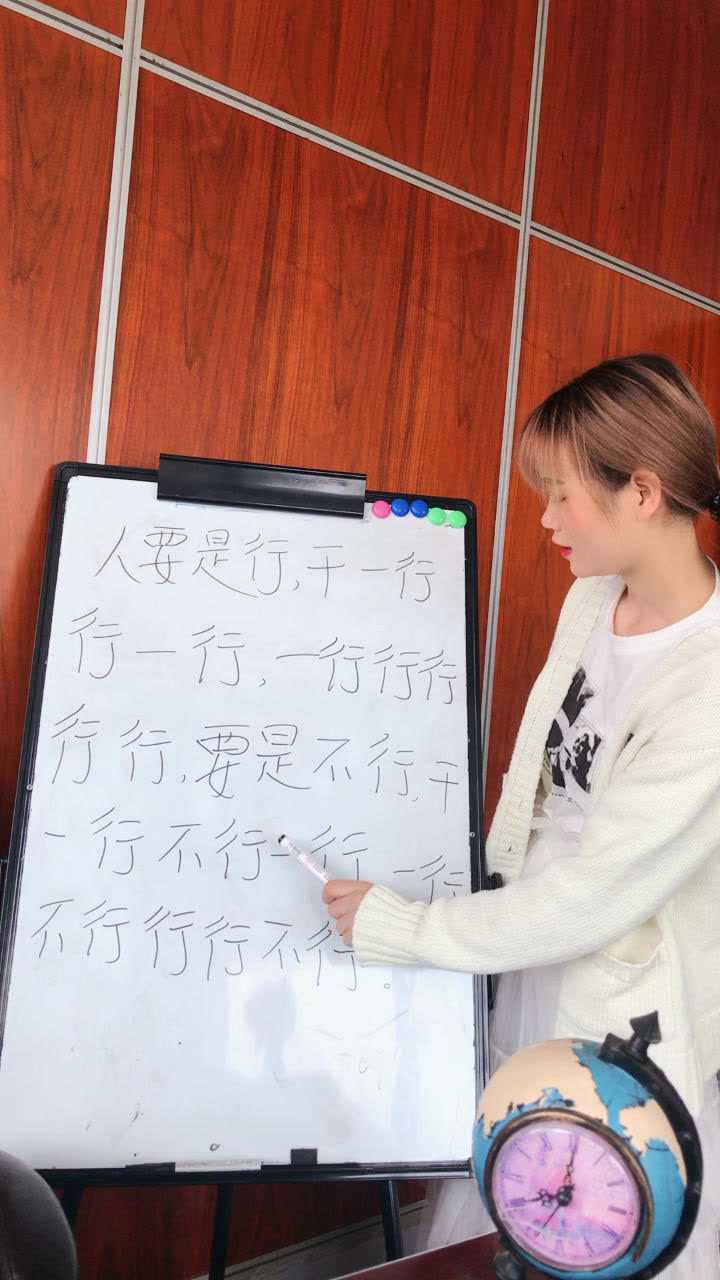 人要是行,干一行
行一行,一行行行
行行,要是不行,干
一行不行一行,一行
不行行行不行。